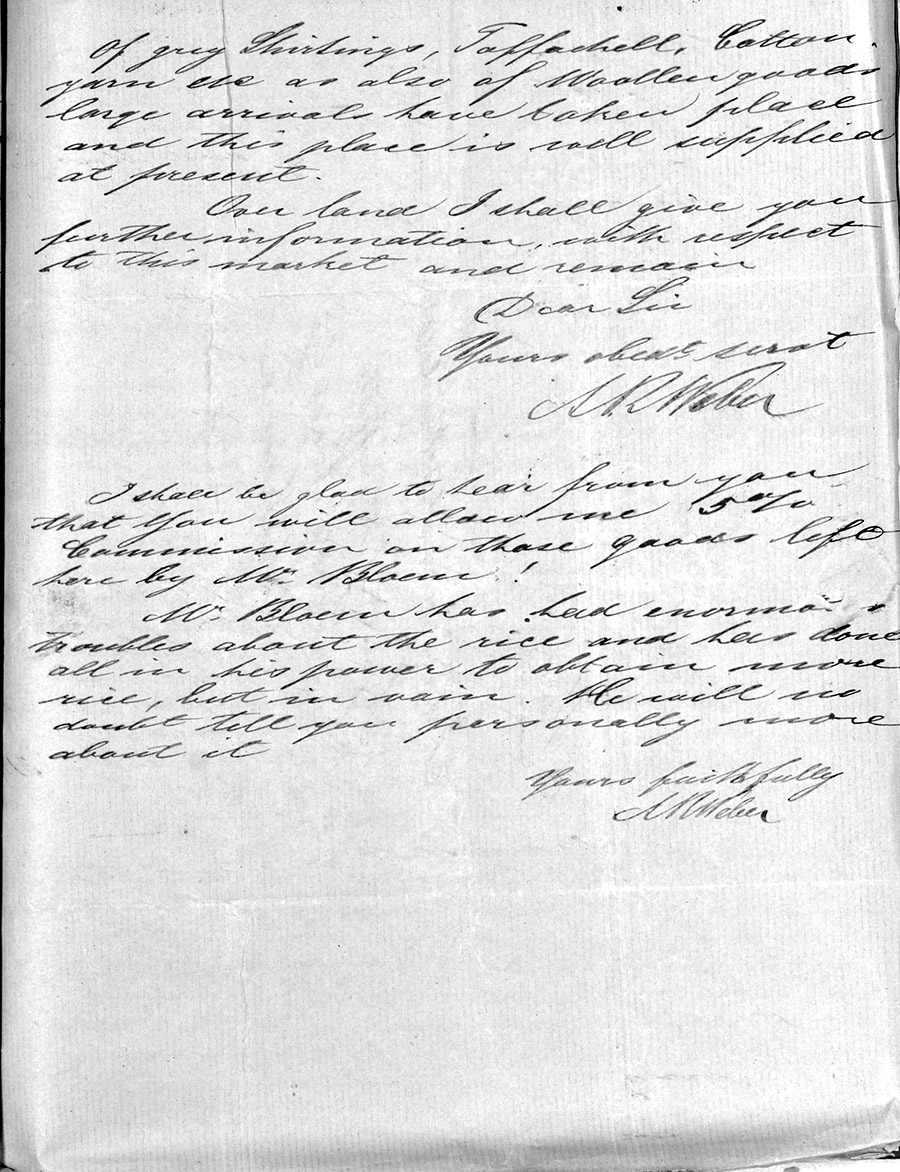 Of grey Shirtings, Taffachell, Cotton
yarn etc as also of Woollen goods
large arrivals have taken place
and this place is well supplied
at present.
Over land I shall give you
further information, with respect
to this market and remain
Dear Sir
Yours obedt. servt
A R Weber
I shall be glad to hear from you
that You will allow me 5 %
Commission on those goods left
here by Mr. Bloem!
Mr. Bloem has had enormous
troubles about the rice and has done
all in his power to obtain more
rice, but in vain. He will no
doubt tell you personally more
about it
Yours faithfully
A R Weber